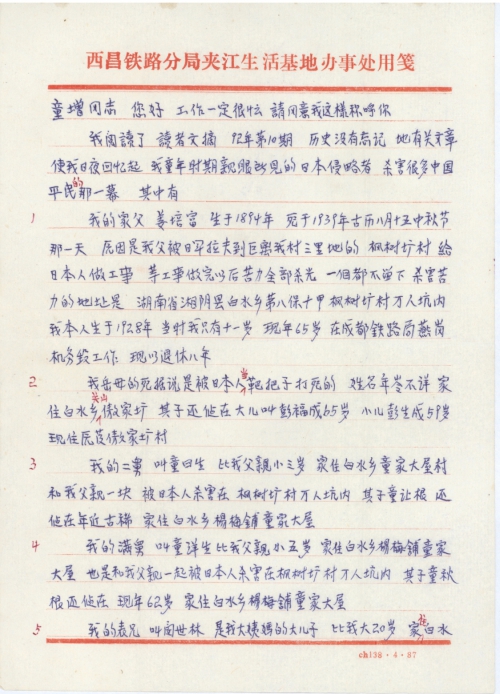 西昌铁路分局夹江生活基地办事处用笺
童增同志 您好 工作一定很忙 請同意我这樣称呼你
我阅讀了 讀者文摘 92年第10期 历史没有忘记 地有关文章
使我日夜回忆起 我童年时期親眼所见的日本侵略者 杀害很多中国
平民的那一幕 其中有
1 我的家父 姜培富 生于1894年 死于1939年古历八月十五中秋节
那一天 原因是我父被日军拉夫到巨离我村三里地的 枫树圹村 给
日本人做工事 等工事做完以后苦力全部杀光 一個都不留下 杀害苦
力的地址是 湖南省湘阴县白水乡第八保十甲枫树圹村万人坑内
我本人生于1928年 当时我只有十一岁 现年65岁 在成都鉄路局燕岗
机务段工作 现以退休八年
2 我岳母的死据说是被日本人当靶把子打死的 姓名年岺不详 家
住白水乡关山傲家圹 其子还健在大儿叫彭福成65岁 小儿彭生成59岁
现住原莨傲家圹村
3 我的二舅 叫童四生 比我父親小三岁 家住白水乡童家大屋村
和我父親一块 被日本人杀害在枫树圹村万人坑内 其子童让根 还
健在年近古稀 家住白水乡楊梅鋪童家大屋
4 我的满舅 叫童洋生比我父親小五岁 家住白水乡楊梅鋪童家
大屋 也是和我父親一起被日本人杀害在枫树圹村万人坑内 其子童秋
根还健在 现年62岁 家住白水乡楊梅鋪童家大屋
5 我的表兄 叫周世林 是我大姨媽的大儿子 比我大20岁 家住白水
ch138·4·87